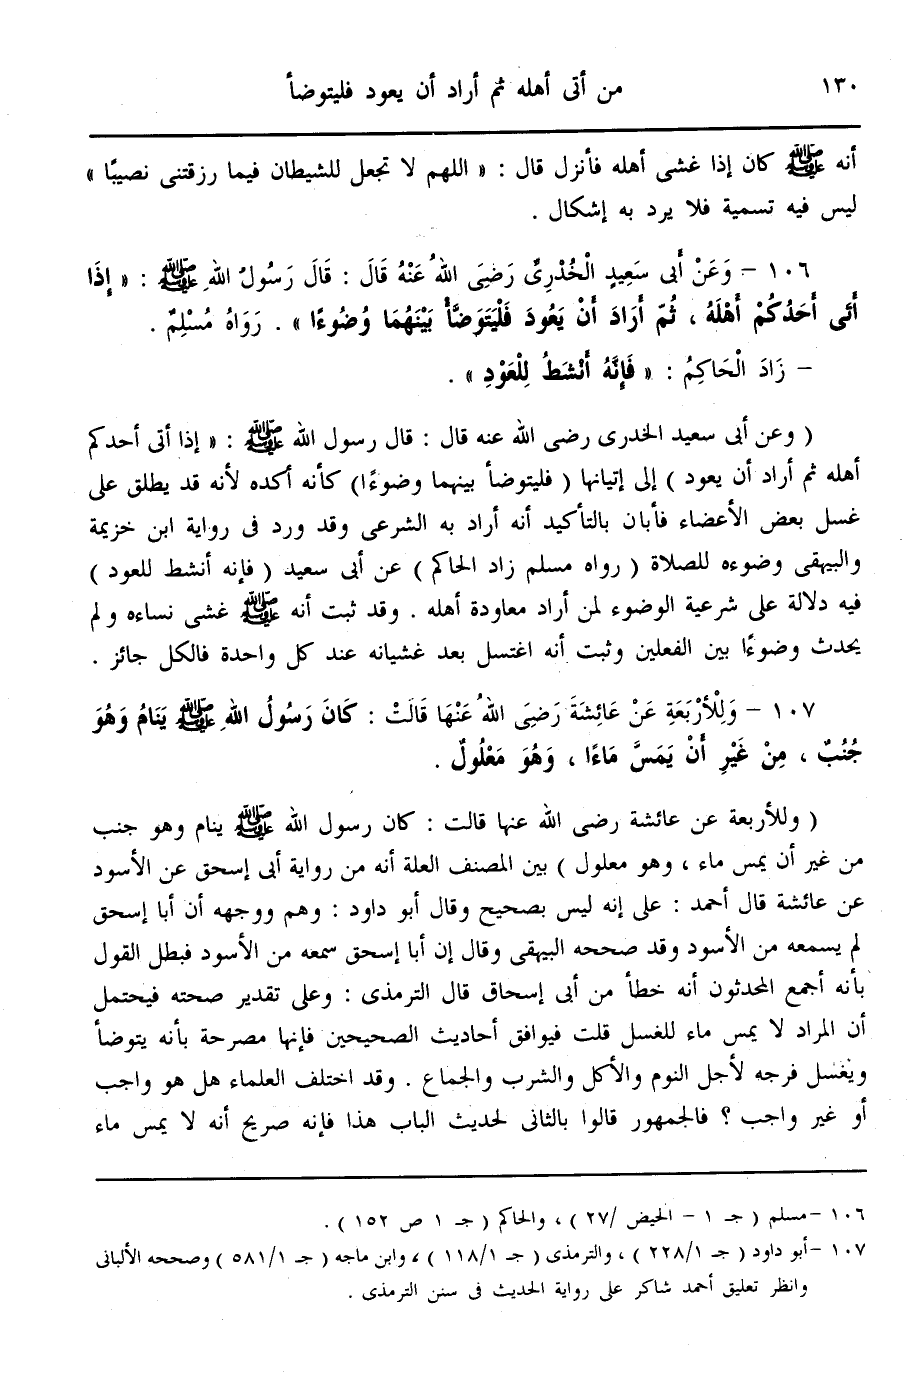 ١٣٠ من أتى أهله ثم أراد أن يعود فليتوضأ
أنه ﷺ كان إذا غشى أهله فأنزل قال : « اللهم لا تجعل للشيطان فيما رزقتنى نصيبًا »
ليس فيه تسمية فلا يرد به إشكال .
١٠٦ – وَعَنْ أَبى سَعِيدٍ الْخُدْرِىِّ رَضِىَ اللهُ عَنْهُ قَالَ : قَالَ رَسُولُ اللهِ ﷺ : « إِذَا
أَتَى أَحَدُكُمْ أَهْلَهُ ، ثُمّ أَرَادَ أَنْ يَعُودَ فَلْيَتَوَضَّأْ بَيْنَهُمَا وُضُوءًا » . رَوَاهُ مُسْلِمٌ .
– زَادَ الْحَاكِمُ : « فَإِنَّهُ أَنْشَطُ لِلْعَوْدِ » .
( وعن أبى سعيد الخدرى رضى الله عنه قال : قال رسول الله ﷺ : « إذا أتى أحدكم
أهله ثم أراد أن يعود ) إلى إتيانها ( فليتوضأ بينهما وضوءًا) كأنه أكده لأنه قد يطلق على
غسل بعض الأعضاء فأبان بالتأكيد أنه أراد به الشرعى وقد ورد فى رواية ابن خزيمة
والبيهقى وضوءه للصلاة ( رواه مسلم زاد الحاكم ) عن أبى سعيد ( فإنه أنشط للعود )
فيه دلالة على شرعية الوضوء لمن أراد معاودة أهله . وقد ثبت أنه ﷺ غشى نساءه ولم
يحدث وضوءًا بين الفعلين وثبت أنه اغتسل بعد غشيانه عند كل واحدة فالكل جائز .
١٠٧ – وَلِلْأرْبَعَةِ عَنْ عَائِشَةَ رَضِىَ اللهُ عَنْهَا قَالَتْ : كَانَ رَسُولُ اللهِ ﷺ يَنَامُ وَهُوَ
جُنُبٌ ، مِنْ غَيْرِ أَنْ يَمَسَّ مَاءًا ، وَهُوَ مَعْلُولٌ .
( وللأربعة عن عائشة رضى الله عنها قالت : كان رسول الله ﷺ ينام وهو جنب
من غير أن يمس ماء ، وهو معلول ) بين المصنف العلة أنه من رواية أبى إسحق عن الأسود
عن عائشة قال أحمد : على إنه ليس بصحيح وقال أبو داود : وهم ووجهه أن أبا إسحق
لم يسمعه من الأسود وقد صححه البيهقى وقال إن أبا إسحق سمعه من الأسود فبطل القول
بأنه أجمع المحدثون أنه خطأ من أبى إسحاق قال الترمذى : وعلى تقدير صحته فيحتمل
أن المراد لا يمس ماء للغسل قلت فيوافق أحاديث الصحيحين فإنها مصرحة بأنه يتوضأ
ويغسل فرجه لأجل النوم والأكل والشرب والجماع . وقد اختلف العلماء هل هو واجب
أو غير واجب ؟ فالجمهور قالوا بالثانى لحديث الباب هذا فإنه صريح أنه لا يمس ماء
١٠٦ – مسلم ( جـ ١ – الحيض /٢٧ ) ، والحاكم ( جـ ١ ص ١٥٢ ) .
١٠٧ – أبو داود ( جـ ٢٢٨/١ ) ، والترمذى ( جـ ١١٨/١ ) ، وابن ماجه ( جـ ٥٨١/١ ) وصححه الألبانى
وانظر تعليق أحمد شاكر على رواية الحديث فى سنن الترمذى .